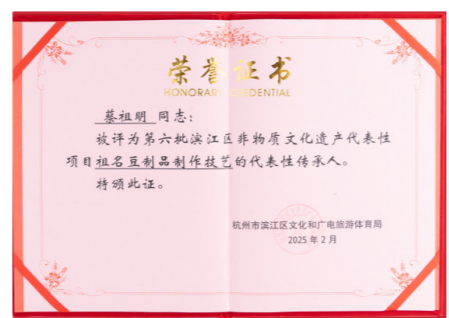 荣誉证书
HONORARY CREDENTIAL
蔡祖明 同志：
被评为第六批滨江区非物质文化遗产代表性
项目祖名豆制品制作技艺的代表性传承人。
特颁此证。
杭州市滨江区文化和广电旅游体育局
2025 年 2 月